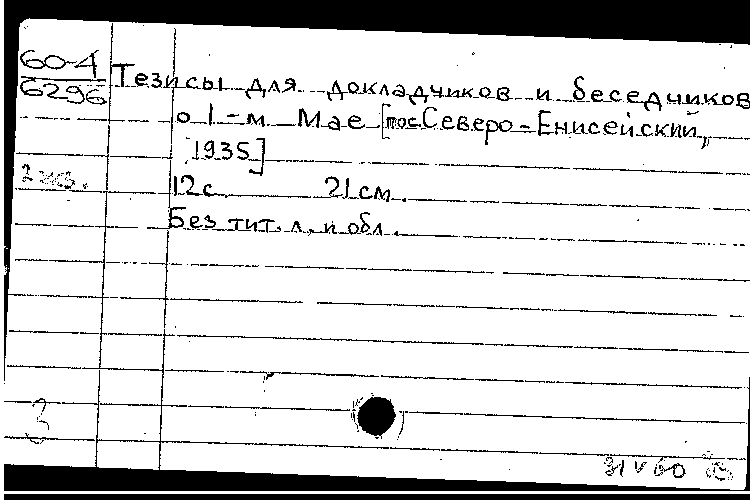 60-4
6296
Тезисы для докладчиков и беседчиков
о 1-м Мае [пос. Северо-Енисейский,
1935]
2 экз.
12 с. 21 см.
Без тит. л. и обл.
3
31 V 60